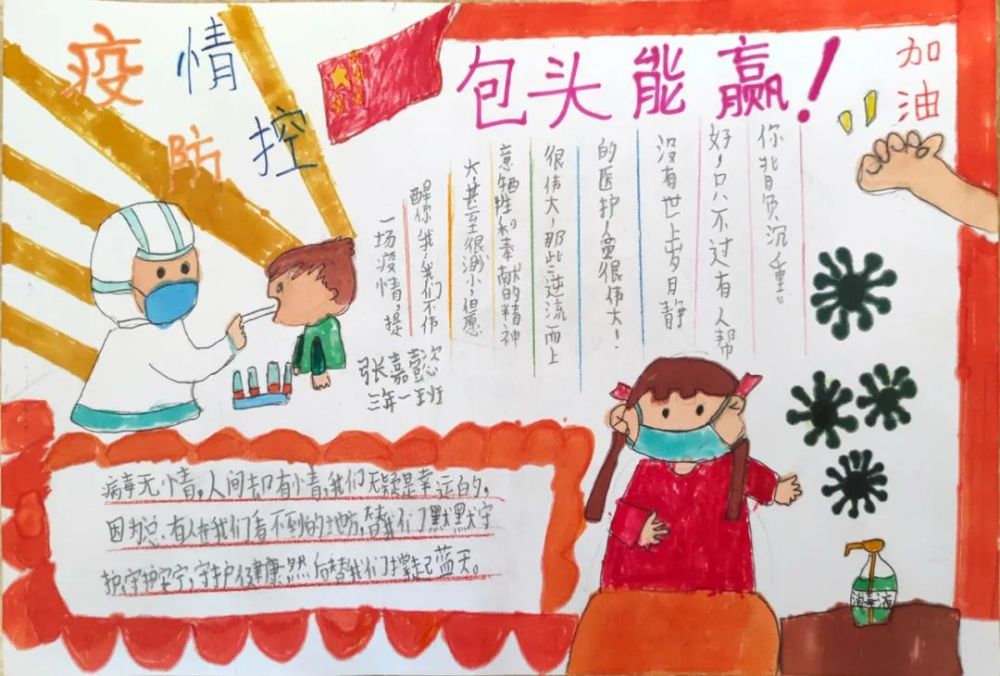 疫情
防控
包头能赢!
加油
一场疫情,提
醒你我,我们不伟
大甚至很渺小,但愿
意牺牲和奉献的精神
很伟大,那些逆流而上
的医护人员很伟大!
没有世上岁月静
好,只不过有人帮
你背负沉重。
张嘉懿
三年一班
病毒无情,人间却有情,我们无疑是幸运的,
因为总有人在我们看不到的地方,替我们默默守
护,守护安宁,守护健康,然后替我们撑起蓝天。
消毒液